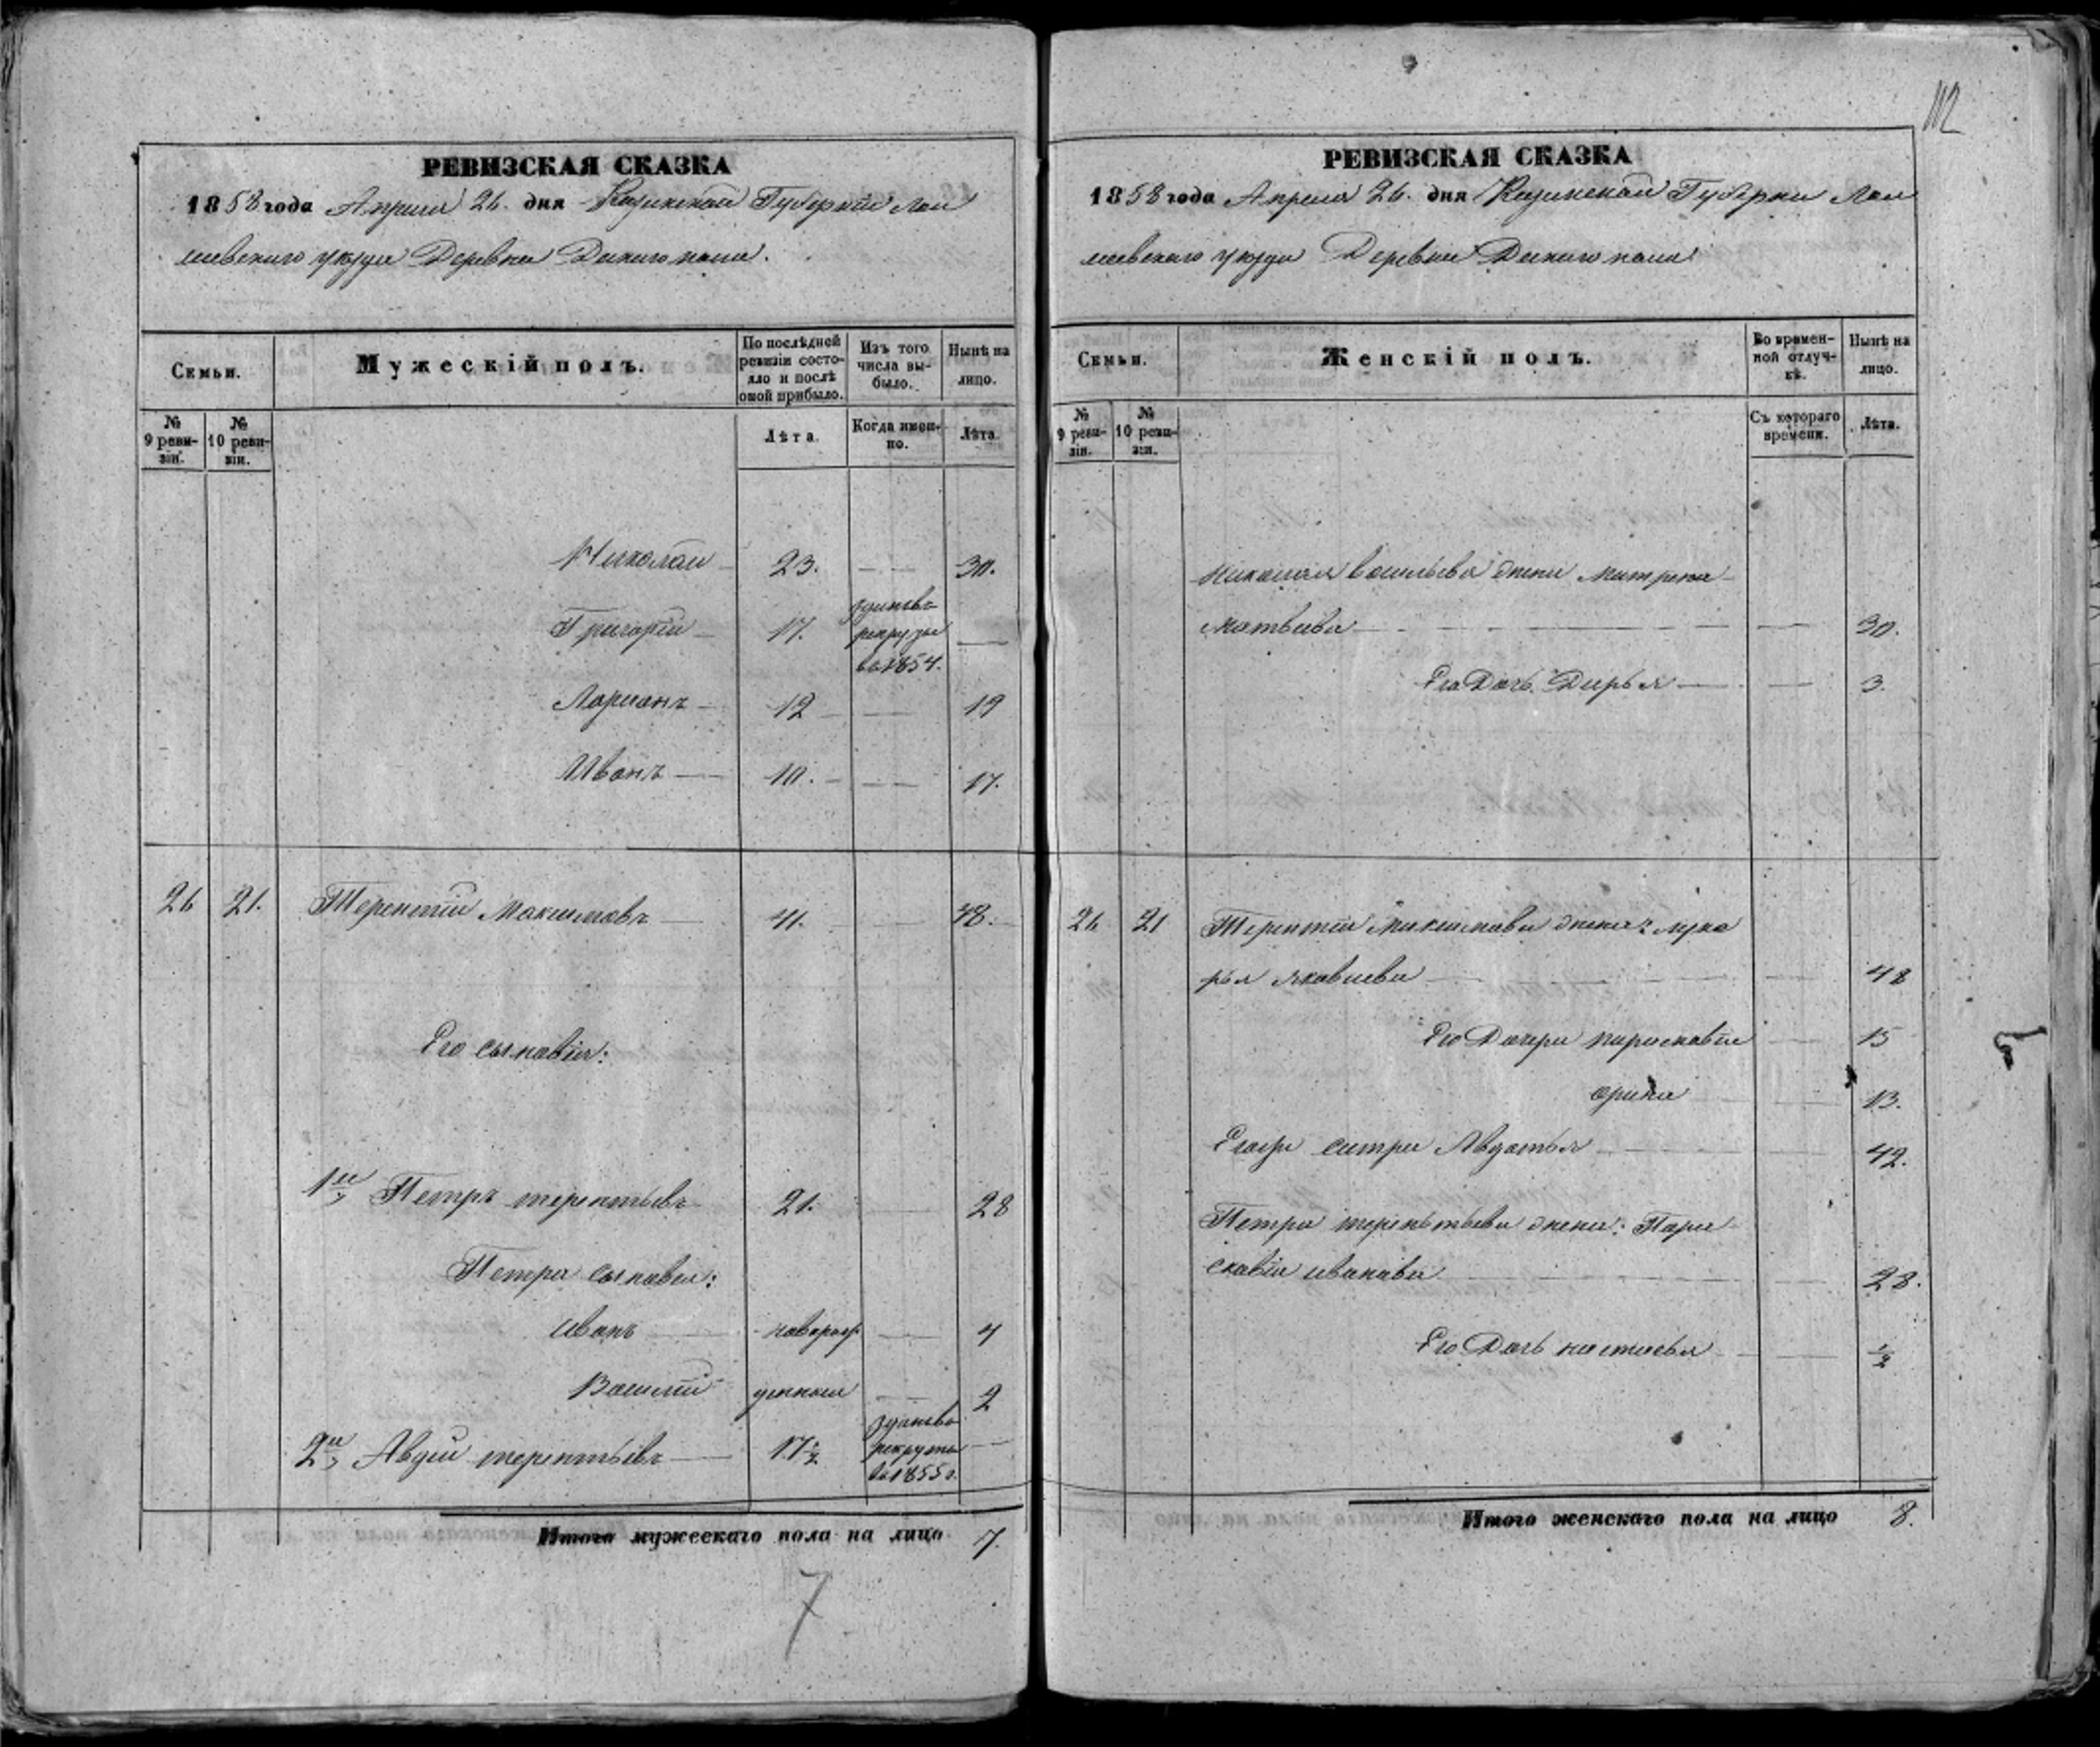 112
РЕВИЗСКАЯ СКАЗКА
1858 года Апреля 26. дня Казанской Губернии Лаи
шевскаго уезда Деревни
Семьи.
Мужескій полъ.
По послѣдней ревизіи состояло и послѣ оной прибыло.
Изъ того числа выбыло.
Нынѣ на лицо.
№ 9 ревизіи.
№ 10 ревизіи.
Лѣта.
Когда именно.
Лѣта.
Николай 23. 30.
Григорій 17. зданъ въ рекруты въ 1854.
Ларионъ 12 19
Иванъ 10. 17.
26 21. Терентій Максимовъ 41. 48.
Его сыновья:
1й Петръ терентьевъ 21. 28
Петра сыновья:
иванъ новорож 4
Василій денныя 2
2й Авдей терентьевъ 17½ зданъ въ рекруты въ 1855 г.
Итого мужескаго пола на лицо 7.
7
РЕВИЗСКАЯ СКАЗКА
1858 года Апреля 26. дня Казанской Губернии Лаи
шевскаго уезда Деревни
Семьи.
Женскій полъ.
Во временной отлучкѣ.
Нынѣ на лицо.
№ 9 ревизіи.
№ 10 ревизіи.
Съ котораго времени.
Лѣта.
Николая васильева жена матрена
матвеева 30.
Его Дочь Дарья 3.
26 21 Терентія максимова жена лукe
рья яковлева 48
Его Дочери парасковия 15
орина 13.
сестра Авдотья 42.
Петра терентьева жена: Пара
сковия иванова 28.
Его Дочь настасья ½
Итого женскаго пола на лицо 8.